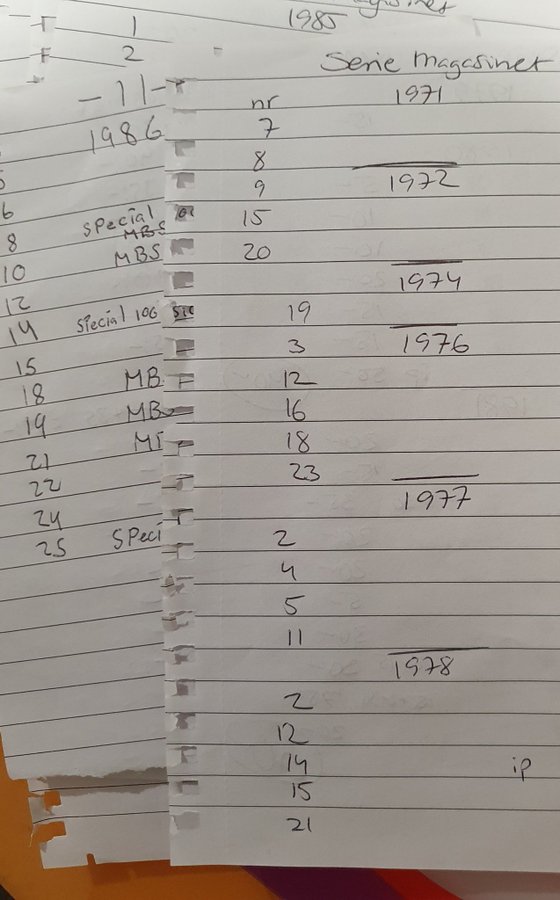 1985
1
2
-11-
1986
6
8 special
MBS
10 MBS
12
14 special 106
15
18 MB
19 MB
21
22
24
25 SPeci
Serie magasinet
nr 1971
7
8
1972
9
15
20
1974
19
1976
3
12
16
18
23
1977
2
4
5
11
1978
2
12
14 ip
15
21